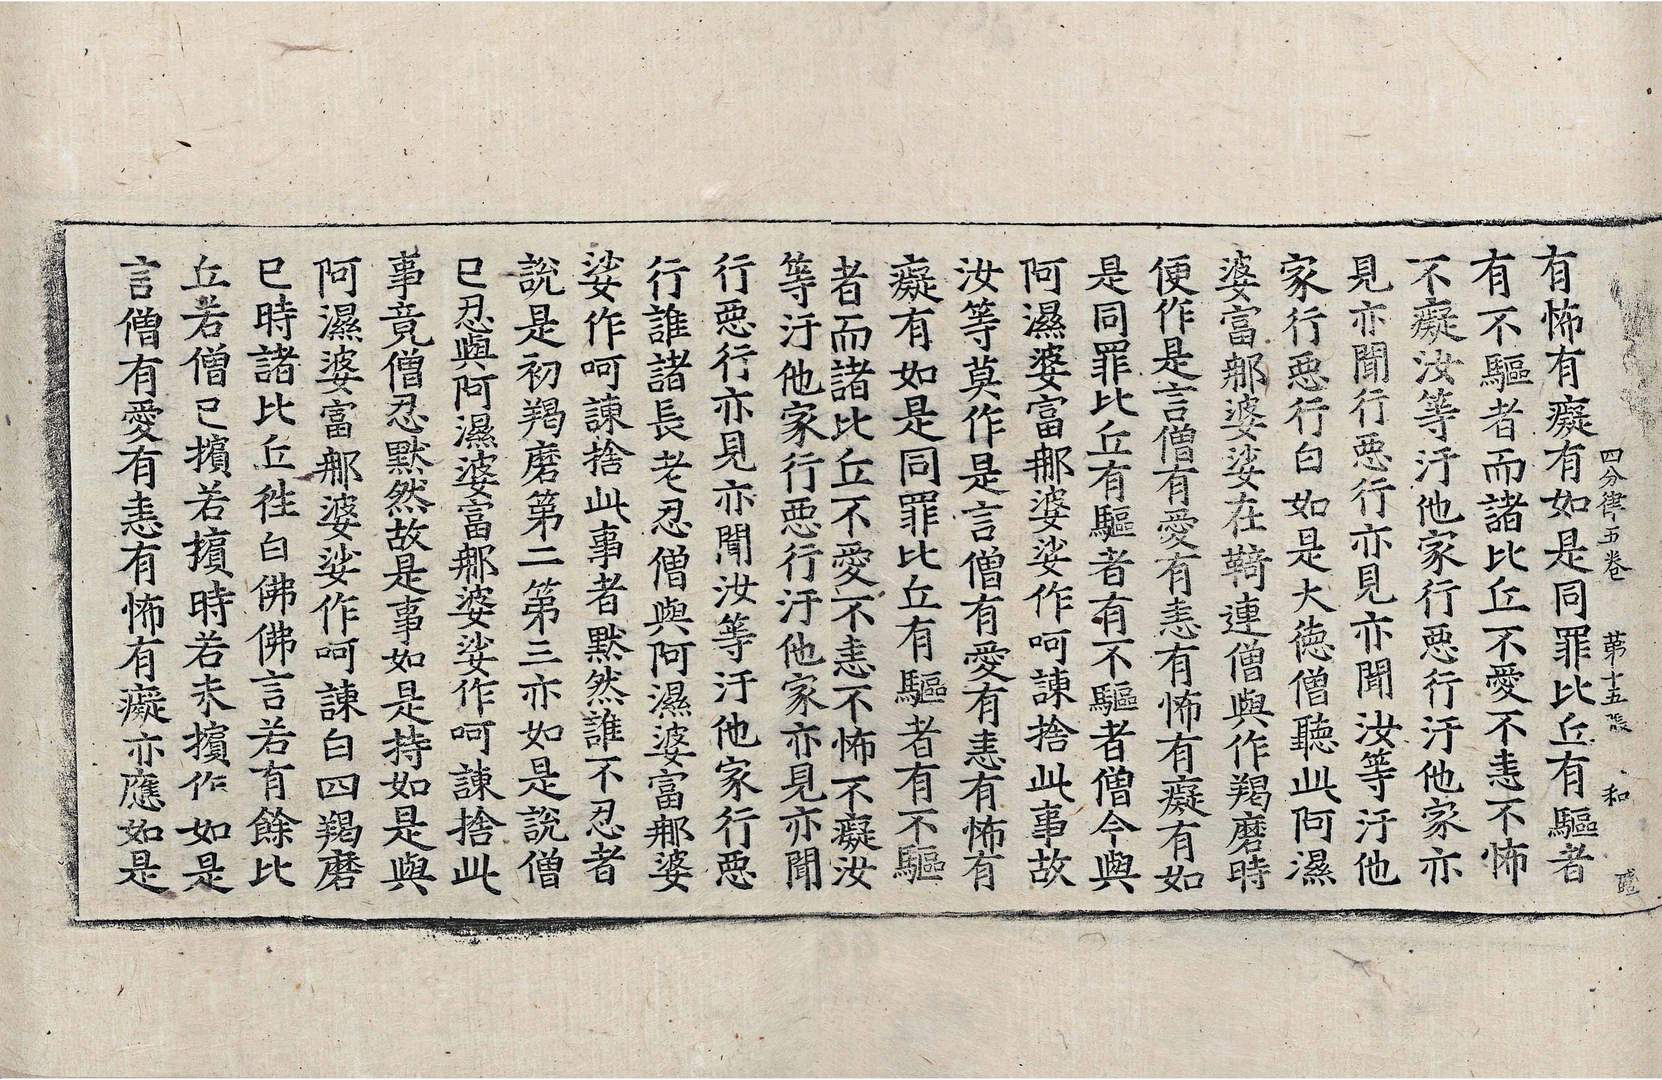 四分律五卷　第十五張　和
有怖有癡有如是同罪比丘有驅者
有不驅者而諸比丘不愛不恚不怖
不癡汝等汙他家行惡行汙他家亦
見亦聞行惡行亦見亦聞汝等汙他
家行惡行白如是大德僧聽此阿濕
婆富那婆娑在鞞連僧與作羯磨時
便作是言僧有愛有恚有怖有癡有如
是同罪比丘有驅者有不驅者僧今與
阿濕婆富那婆娑作呵諫捨此事故
汝等莫作是言僧有愛有恚有怖有
癡有如是同罪比丘有驅者有不驅
者而諸比丘不愛不恚不怖不癡汝
等汙他家行惡行汙他家亦見亦聞
行惡行亦見亦聞汝等汙他家行惡
行誰諸長老忍僧與阿濕婆富那婆
娑作呵諫捨此事者默然誰不忍者
說是初羯磨第二第三亦如是說僧
已忍與阿濕婆富那婆娑作呵諫捨此
事竟僧忍默然故是事如是持如是與
阿濕婆富那婆娑作呵諫白四羯磨
已時諸比丘往白佛佛言若有餘比
丘若僧已擯若擯時若未擯作如是
言僧有愛有恚有怖有癡亦應如是